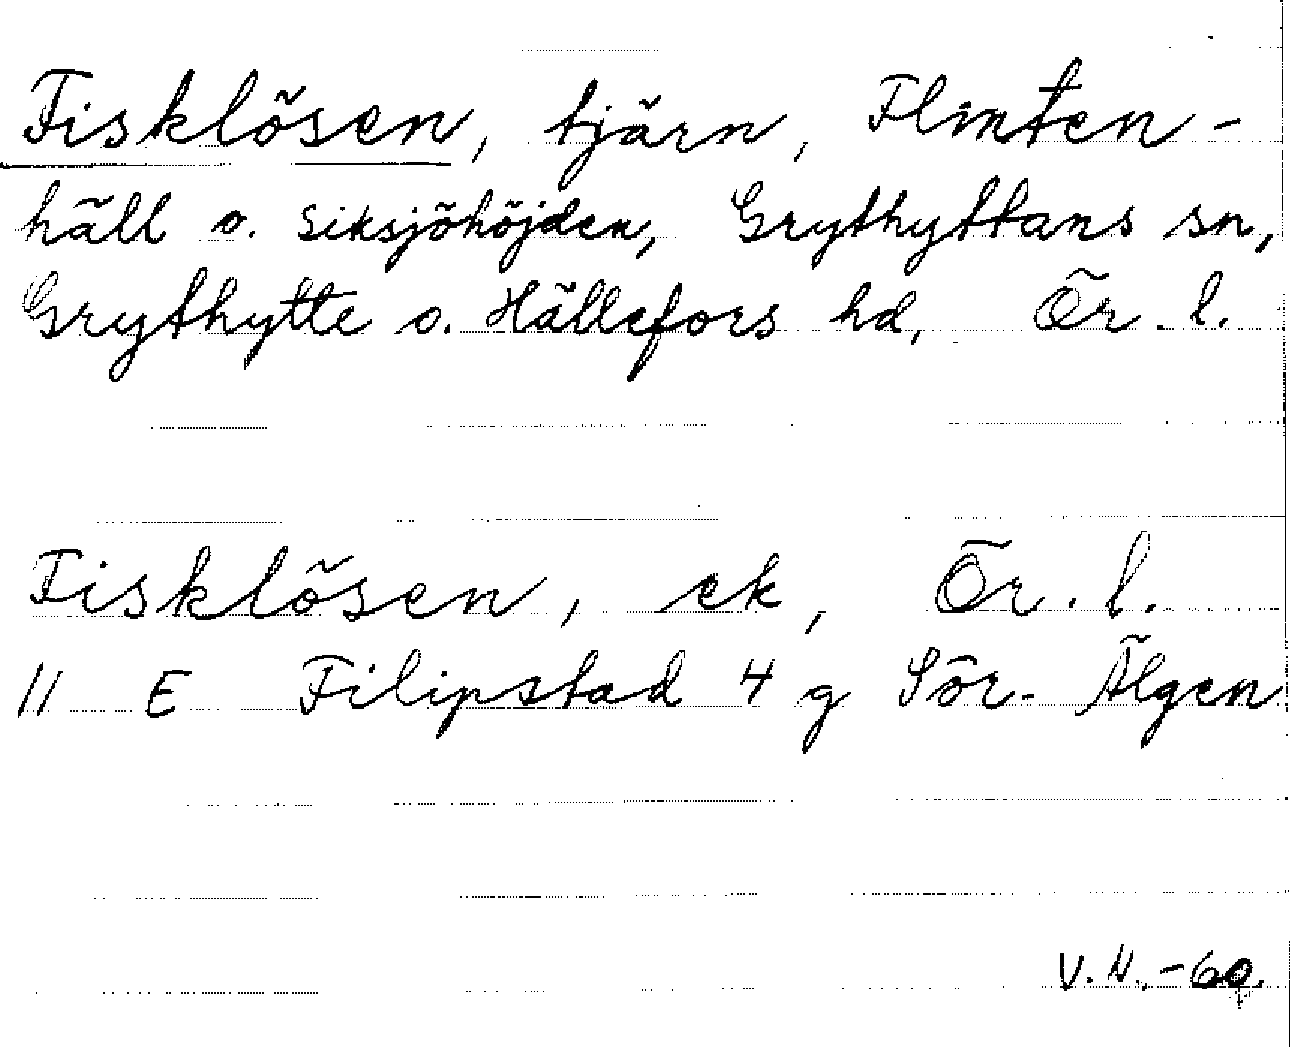 Fisklösen, tjärn, Flinten-
häll o. Siksjöhöjden, Grythyttans sn,
Grythytte o. Hällefors hd, Ör. l.
Fisklösen, ek, Ör. l.
11 E Filipstad 4 g Sör-Älgen
V.N.-60.